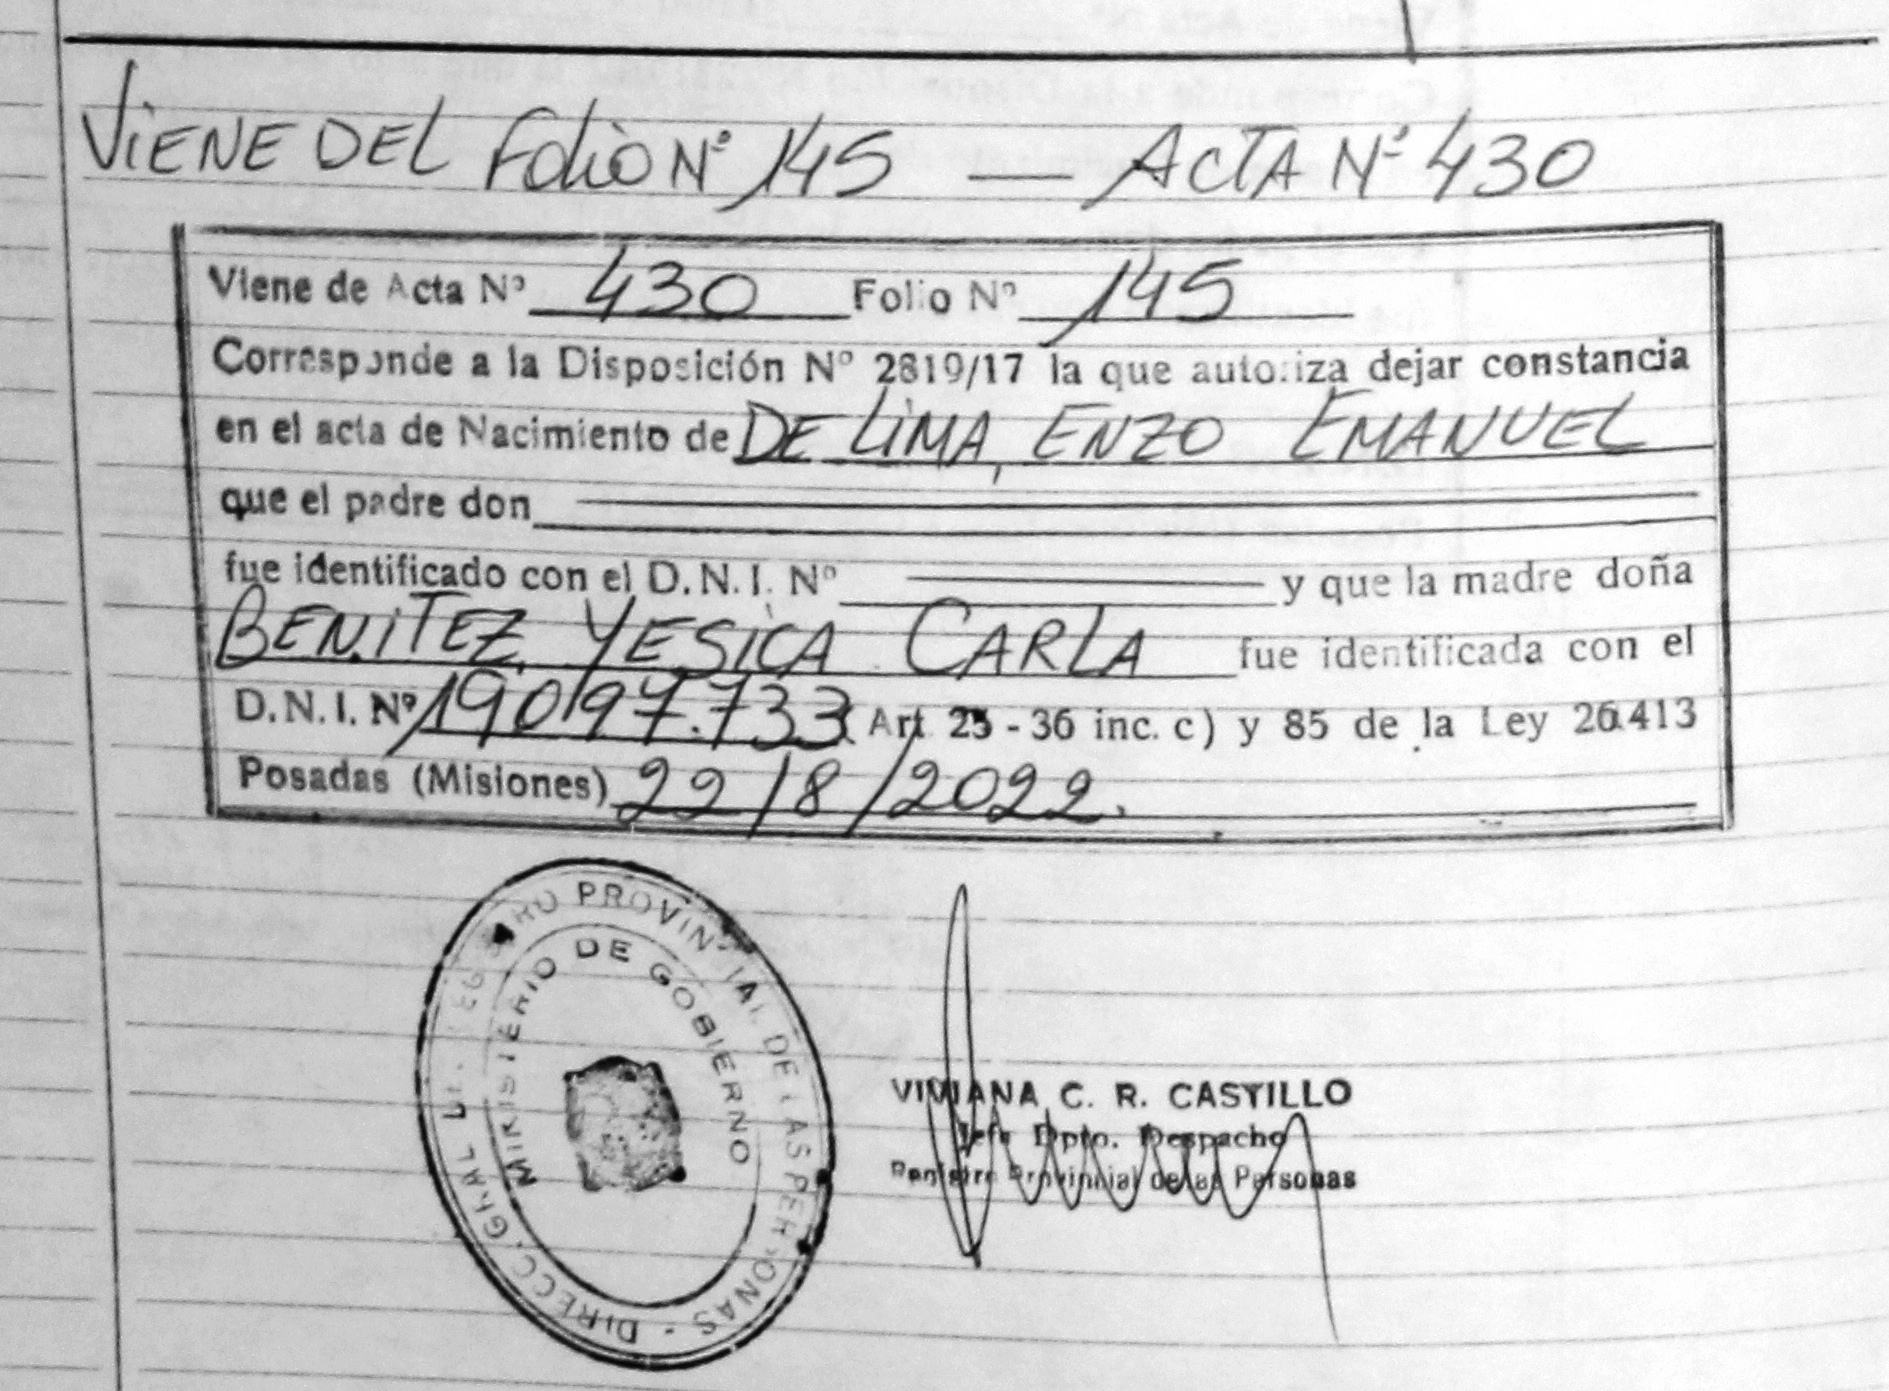 ViENE DEL Folio Nº 145 — ACTA Nº 430
Viene de Acta Nº 430 Folio Nº 145
Corresponde a la Disposición Nº 2819/17 la que autoriza dejar constancia
en el acta de Nacimiento de DE LiMA, ENZO EMANUEL
que el padre don
fue identificado con el D.N.I. Nº y que la madre doña
BENiTEZ, YESiCA CARLA fue identificada con el
D.N.I. Nº 19.097.733 (Art 25 - 36 inc. c) y 85 de la Ley 26.413
Posadas (Misiones) 22/8/2022.
DIRECC. GRAL DEL REGISTRO PROVINCIAL DE LAS PERSONAS -
MINISTERIO DE GOBIERNO
VIVIANA C. R. CASTILLO
Jefe Dpto. Despacho
Registro Provincial de las Personas